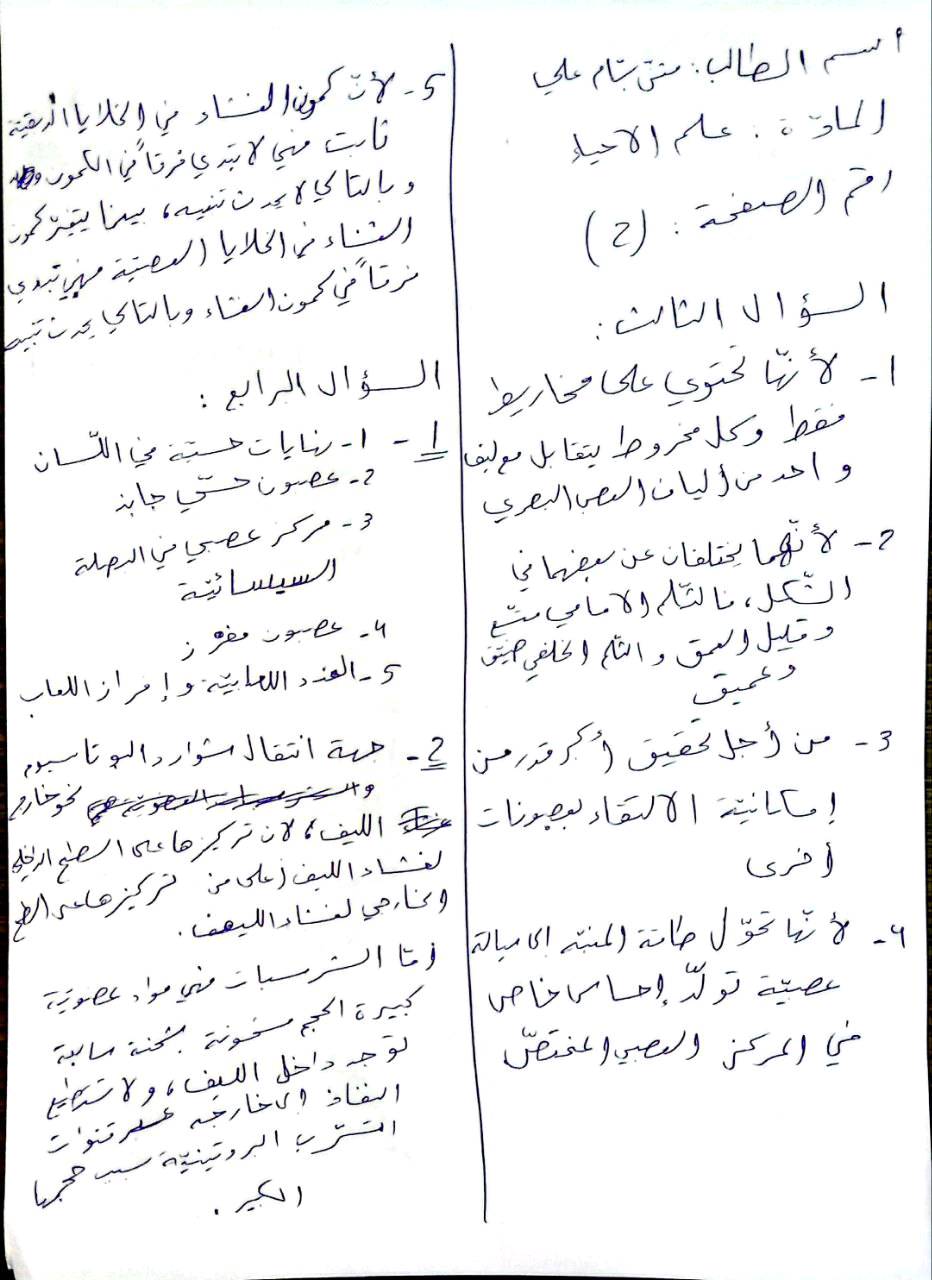 اسم الطالب: بسّام علي
المادّة: علم الاحياء
رقم الصفحة: (2)
السؤال الثالث:
1- لأنّها تحتوي على مخاريط
فقط وكل مخروط يتقابل مع ليف
واحد من ألياف العصب البصري
2- لأنّهما يختلفان عن بعضهما في
الشّكل، فالثّلم الامامي متّسع
وقليل العمق والثلم الخلفي ضيّق
وعميق
3- من أجل تحقيق أكبر قدر من
إمكانيّة الالتقاء بعصبونات
أخرى
4- لأنّها تحوّل طاقة المنبّه الى سيالة
عصبيّة تولّد إحساس خاص
في المركز العصبي المختصّ
5- لأنّ كمون الغشاء في الخلايا الدبقية
ثابت فهي لا تبدي فرقاً في الكمون
وبالتالي لا يحدث تنبيه، بينما يتغيّر كمون
الغشاء في الخلايا العصبيّة فهي تبدي
فرقاً في كمون الغشاء وبالتالي يحدث تنبيه
السؤال الرابع:
1- 1- نهايات حسيّة في اللّسان
2- عصبون حسّي جابذ
3- مركز عصبي في البصلة
السيسائيّة
4- عصبون مفرز
5- الغدد اللعابيّة وإفراز اللعاب
2- جهة انتقال شوارد البوتاسيوم
نحو خارج
الليف، لان تركيزها على السطح الداخلي
لغشاء الليف أعلى من تركيزها على السطح
الخارجي لغشاء الليف.
أمّا الشرسبات فهي مواد عضويّة
كبيرة الحجم مشحونة بشحنة سالبة
توجد داخل الليف، ولا تستطيع
النفاذ الى خارجه عبر قنوات
التسّرب البروتينيّة بسبب حجمها
الكبير.